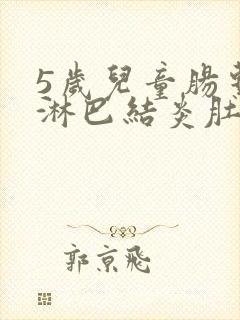 5歲兒童腸
淋巴結炎肚
郭京飛